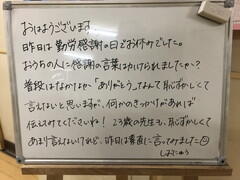 おはようございます
昨日は勤労感謝の日でお休みでした。
おうちの人に感謝の言葉はかけられましたか？
普段はなかなか「ありがとう」なんて恥ずかしくて
言えないと思いますが、何かのきっかけがあれば
伝えてみてくださいね！ 23歳の先生も、恥ずかしくて
あまり言えないけれど、昨日は素直に言ってみました